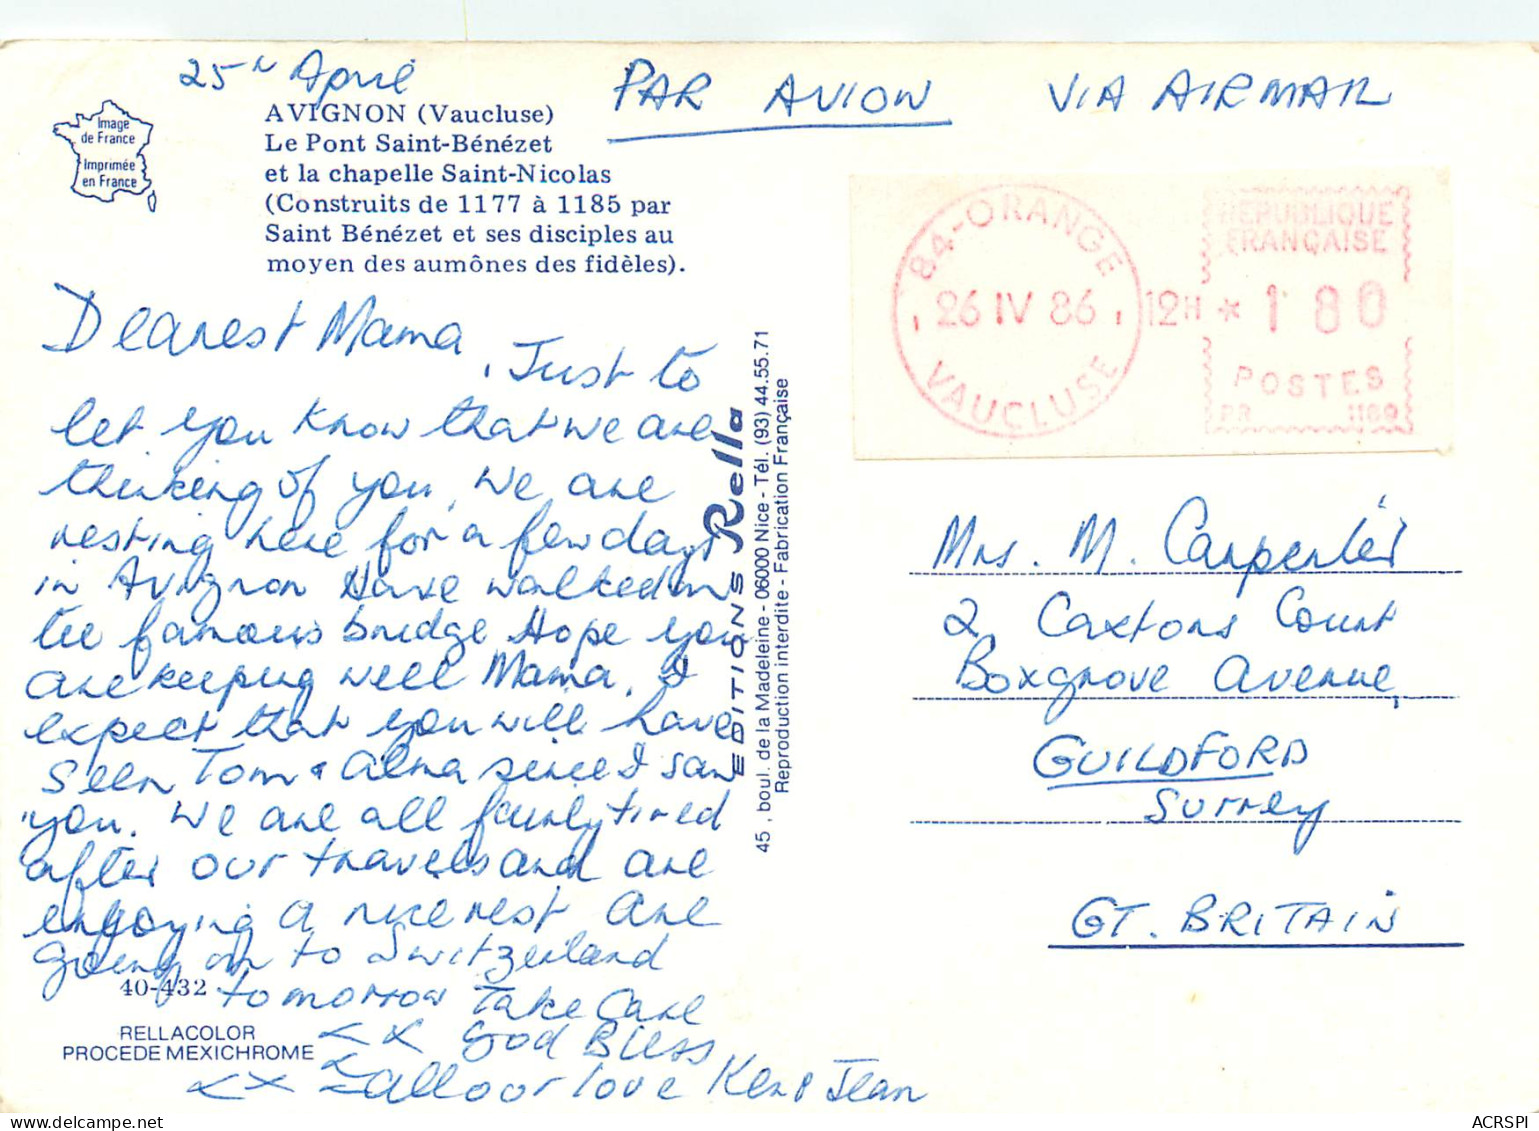 25th April
PAR AVION
VIA AIR MAIL
Image
de France
Imprimée
en France
AVIGNON (Vaucluse)
Le Pont Saint-Bénézet
et la chapelle Saint-Nicolas
(Construits de 1177 à 1185 par
Saint Bénézet et ses disciples au
moyen des aumônes des fidèles).
84-ORANGE
26 IV 86
VAUCLUSE
12H
REPUBLIQUE
FRANÇAISE
* 1 80
POSTES
PR 1169
Dearest Mama
, Just to
let you know that we are
thinking of you, we are
resting here for a few days
in Avignon Have walked on
the famous bridge Hope you
are keeping well Mama. I
expect that you will have
seen Tom & Alma since I saw
you. We are all fairly tired
after our travels and are
enjoying a nice rest are
going on to Switzerland
tomorrow Take Care
God Bless
all our love Ken & Jean
40-432
RELLACOLOR
PROCEDE MEXICHROME
EDITIONS Rella
45, boul. de la Madeleine - 06000 Nice - Tél. (93) 44.55.71
Reproduction interdite - Fabrication Française
Mrs. M. Carpenter
2, Caxtons Court
Boxgrove Avenue,
GUILDFORD
Surrey
GT. BRITAIN
ACRSPI